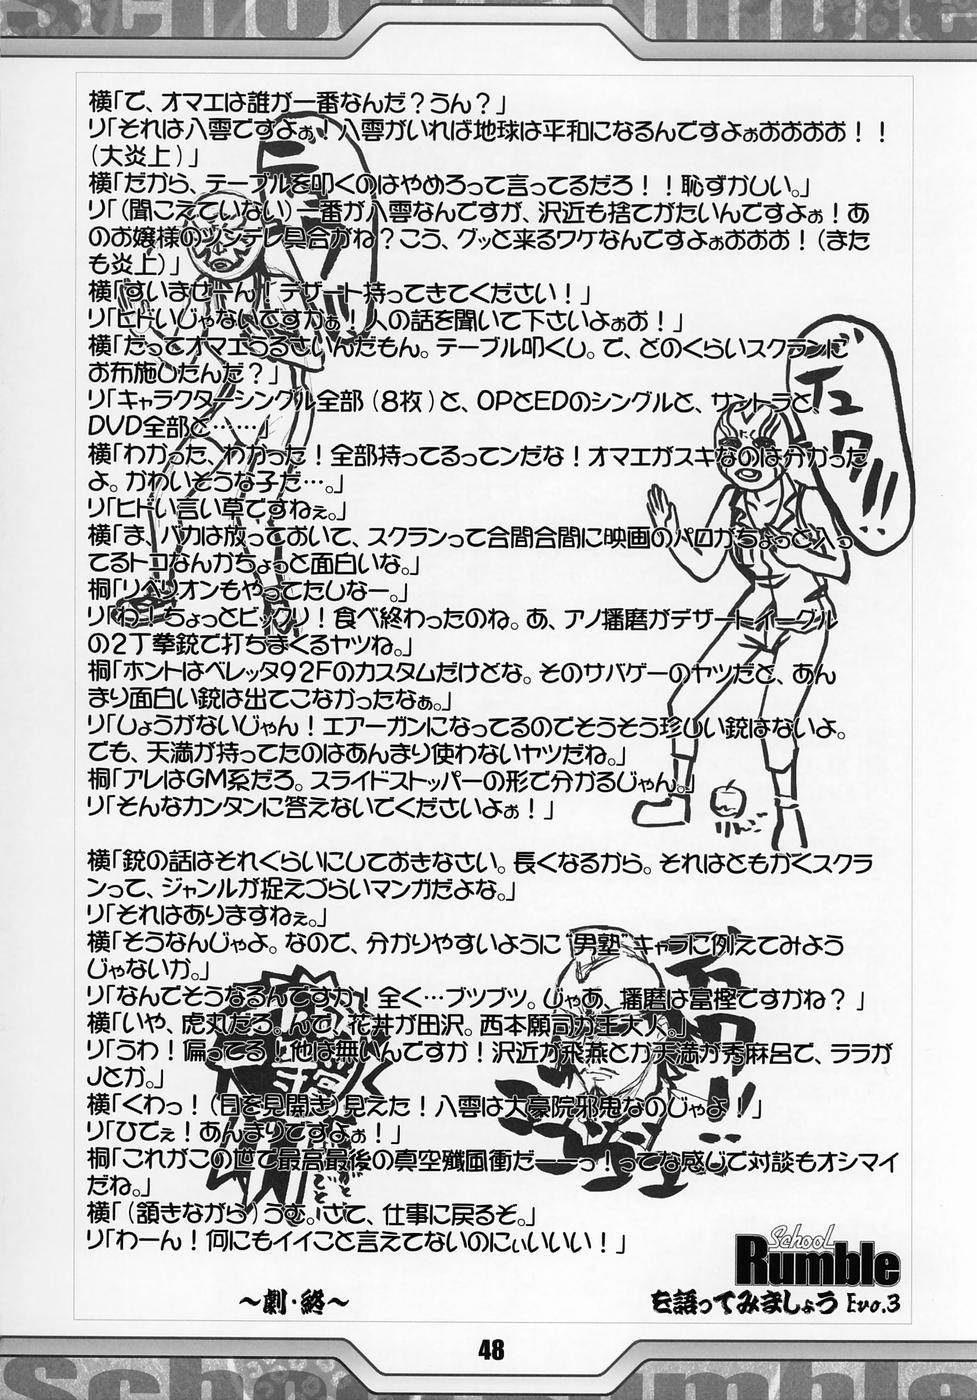 School Rumble
横「で、オマエは誰が一番なんだ？うん？」
リ「それは八雲ですよぉ！八雲がいれば地球は平和になるんですよぉおおおお！！
（大炎上）」
横「だから、テーブルを叩くのはやめろって言ってるだろ！！恥ずかしい。」
リ「（聞こえていない）一番が八雲なんですが、沢近も捨てがたいんですよぉ！あ
のお嬢様のツンデレ具合がね？こう、グッと来るワケなんですよぉおおお！（また
も炎上）」
横「すいませーん！デザート持ってきてください！」
リ「ヒドいじゃないですかぁ！人の話を聞いて下さいよぉお！」
横「だってオマエうるさいんだもん。テーブル叩くし。で、どのくらいスクランに
お布施したんだ？」
リ「キャラクターシングル全部（８枚）と、OPとEDのシングルと、サントラと、
DVD全部と……」
横「わかった、わかった！全部持ってるってンだな！オマエがスキなのは分かった
よ。かわいそうな子だ…。」
リ「ヒドい言い草ですねぇ。」
横「ま、バカは放っておいて、スクランって合間合間に映画のパロがちょっと入っ
てるトコなんかちょっと面白いな。」
桐「リベリオンもやってたしなー。」
リ「わ！ちょっとビックリ！食べ終わったのね。あ、アノ播磨がデザートイーグル
の２丁拳銃で打ちまくるヤツね。」
桐「ホントはベレッタ９２Fのカスタムだけどな。そのサバゲーのヤツだと、あん
まり面白い銃は出てこなかったなぁ。」
リ「しょうがないじゃん！エアーガンになってるのでそうそう珍しい銃はないよ。
でも、天満が持ってたのはあんまり使わないヤツだね。」
桐「アレはGM系だろ。スライドストッパーの形で分かるじゃん。」
リ「そんなカンタンに答えないでくださいよぉ！」
りんご
横「銃の話はそれぐらいにしておきなさい。長くなるから。それはともかくスクラ
ンって、ジャンルが捉えづらいマンガだよな。」
リ「それはありますねぇ。」
横「そうなんじゃよ。なので、分かりやすいように“男塾”キャラに例えてみよう
じゃないか。」
リ「なんでそうなるんですか！全く…ブツブツ。じゃあ、播磨は富樫ですかね？」
横「いや、虎丸だろ。んで、花井が田沢。西本願司が王大人。」
リ「うわ！偏ってる！他は無いんですか！沢近が飛燕とか天満が秀麻呂で、ララが
Jとか。」
横「くわっ！（目を見開き）見えた！八雲は大豪院邪鬼なのじゃよ！」
リ「ひでぇ！あんまりですよぉ！」
桐「これがこの世で最高最後の真空殲風衝だーーっ！ってな感じで対談もオシマイ
だね。」
横「（頷きながら）うむ。さて、仕事に戻るぞ。」
リ「わーん！何にもイイこと言えてないのにぃいいい！」
School
Rumble
を語ってみましょう Evo.3
～劇・終～
48
School Rumble